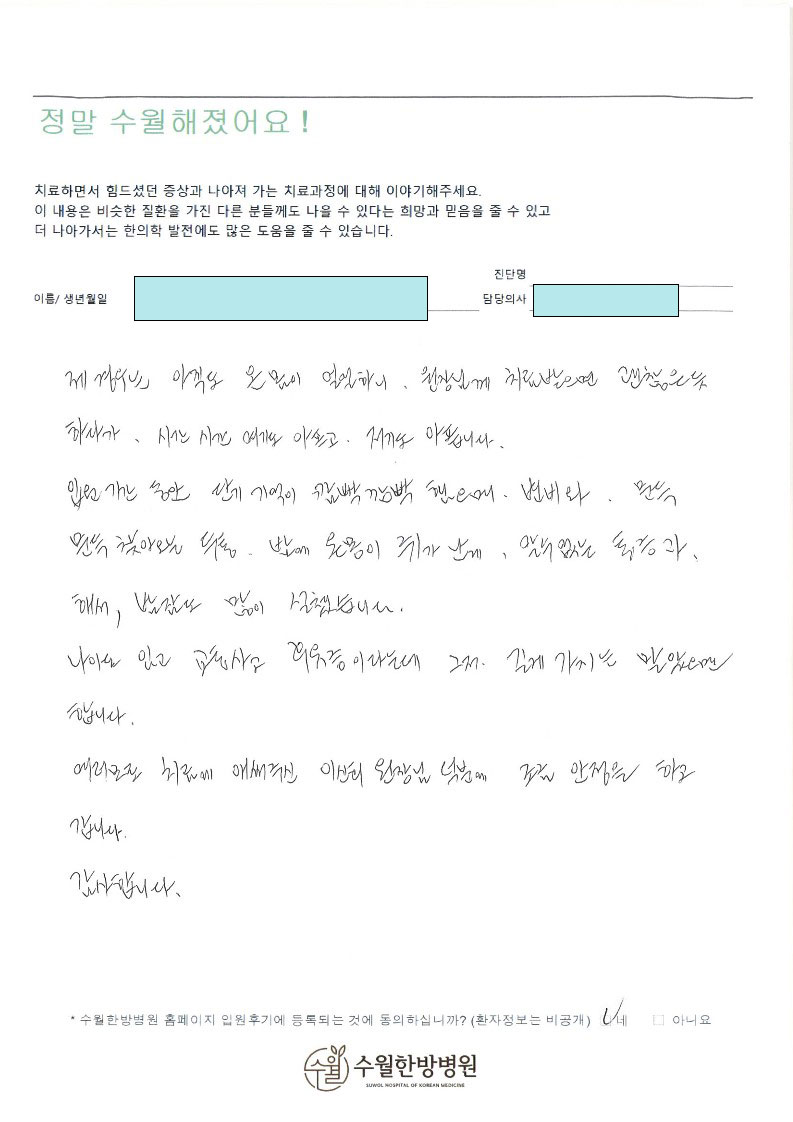 정말 수월해졌어요!
치료하면서 힘드셨던 증상과 나아져 가는 치료과정에 대해 이야기해주세요.
이 내용은 비슷한 질환을 가진 다른 분들께도 나을 수 있다는 희망과 믿음을 줄 수 있고
더 나아가서는 한의학 발전에도 많은 도움을 줄 수 있습니다.
진단명
이름/ 생년월일 담당의사
제 경우는 아직도 온몸이 얼얼하니, 원장님께 치료받으면 괜찮은듯
하다가, 시시 여기도 아프고. 저기도 아픕니다.
입원 기간 동안 단기 기억이 깜빡깜빡 했으며. 변비와, 문득
문득 찾아오는 두통. 밤에 온몸이 쥐가 나게, 알수없는 통증과,
해서, 밤잠도 많이 설쳤습니다.
나이도 있고 교통사고 휴유증이라는데 그저. 길게 가지는 말았으면
합니다.
여러모로 치료에 애써주신 원장님 덕분에 조금 안정을 하고
갑니다.
감사합니다.
* 수월한방병원 홈페이지 입원후기에 등록되는 것에 동의하십니까? (환자정보는 비공개) 네 아니요
수월 수월한방병원
SUWOL HOSPITAL OF KOREAN MEDICINE